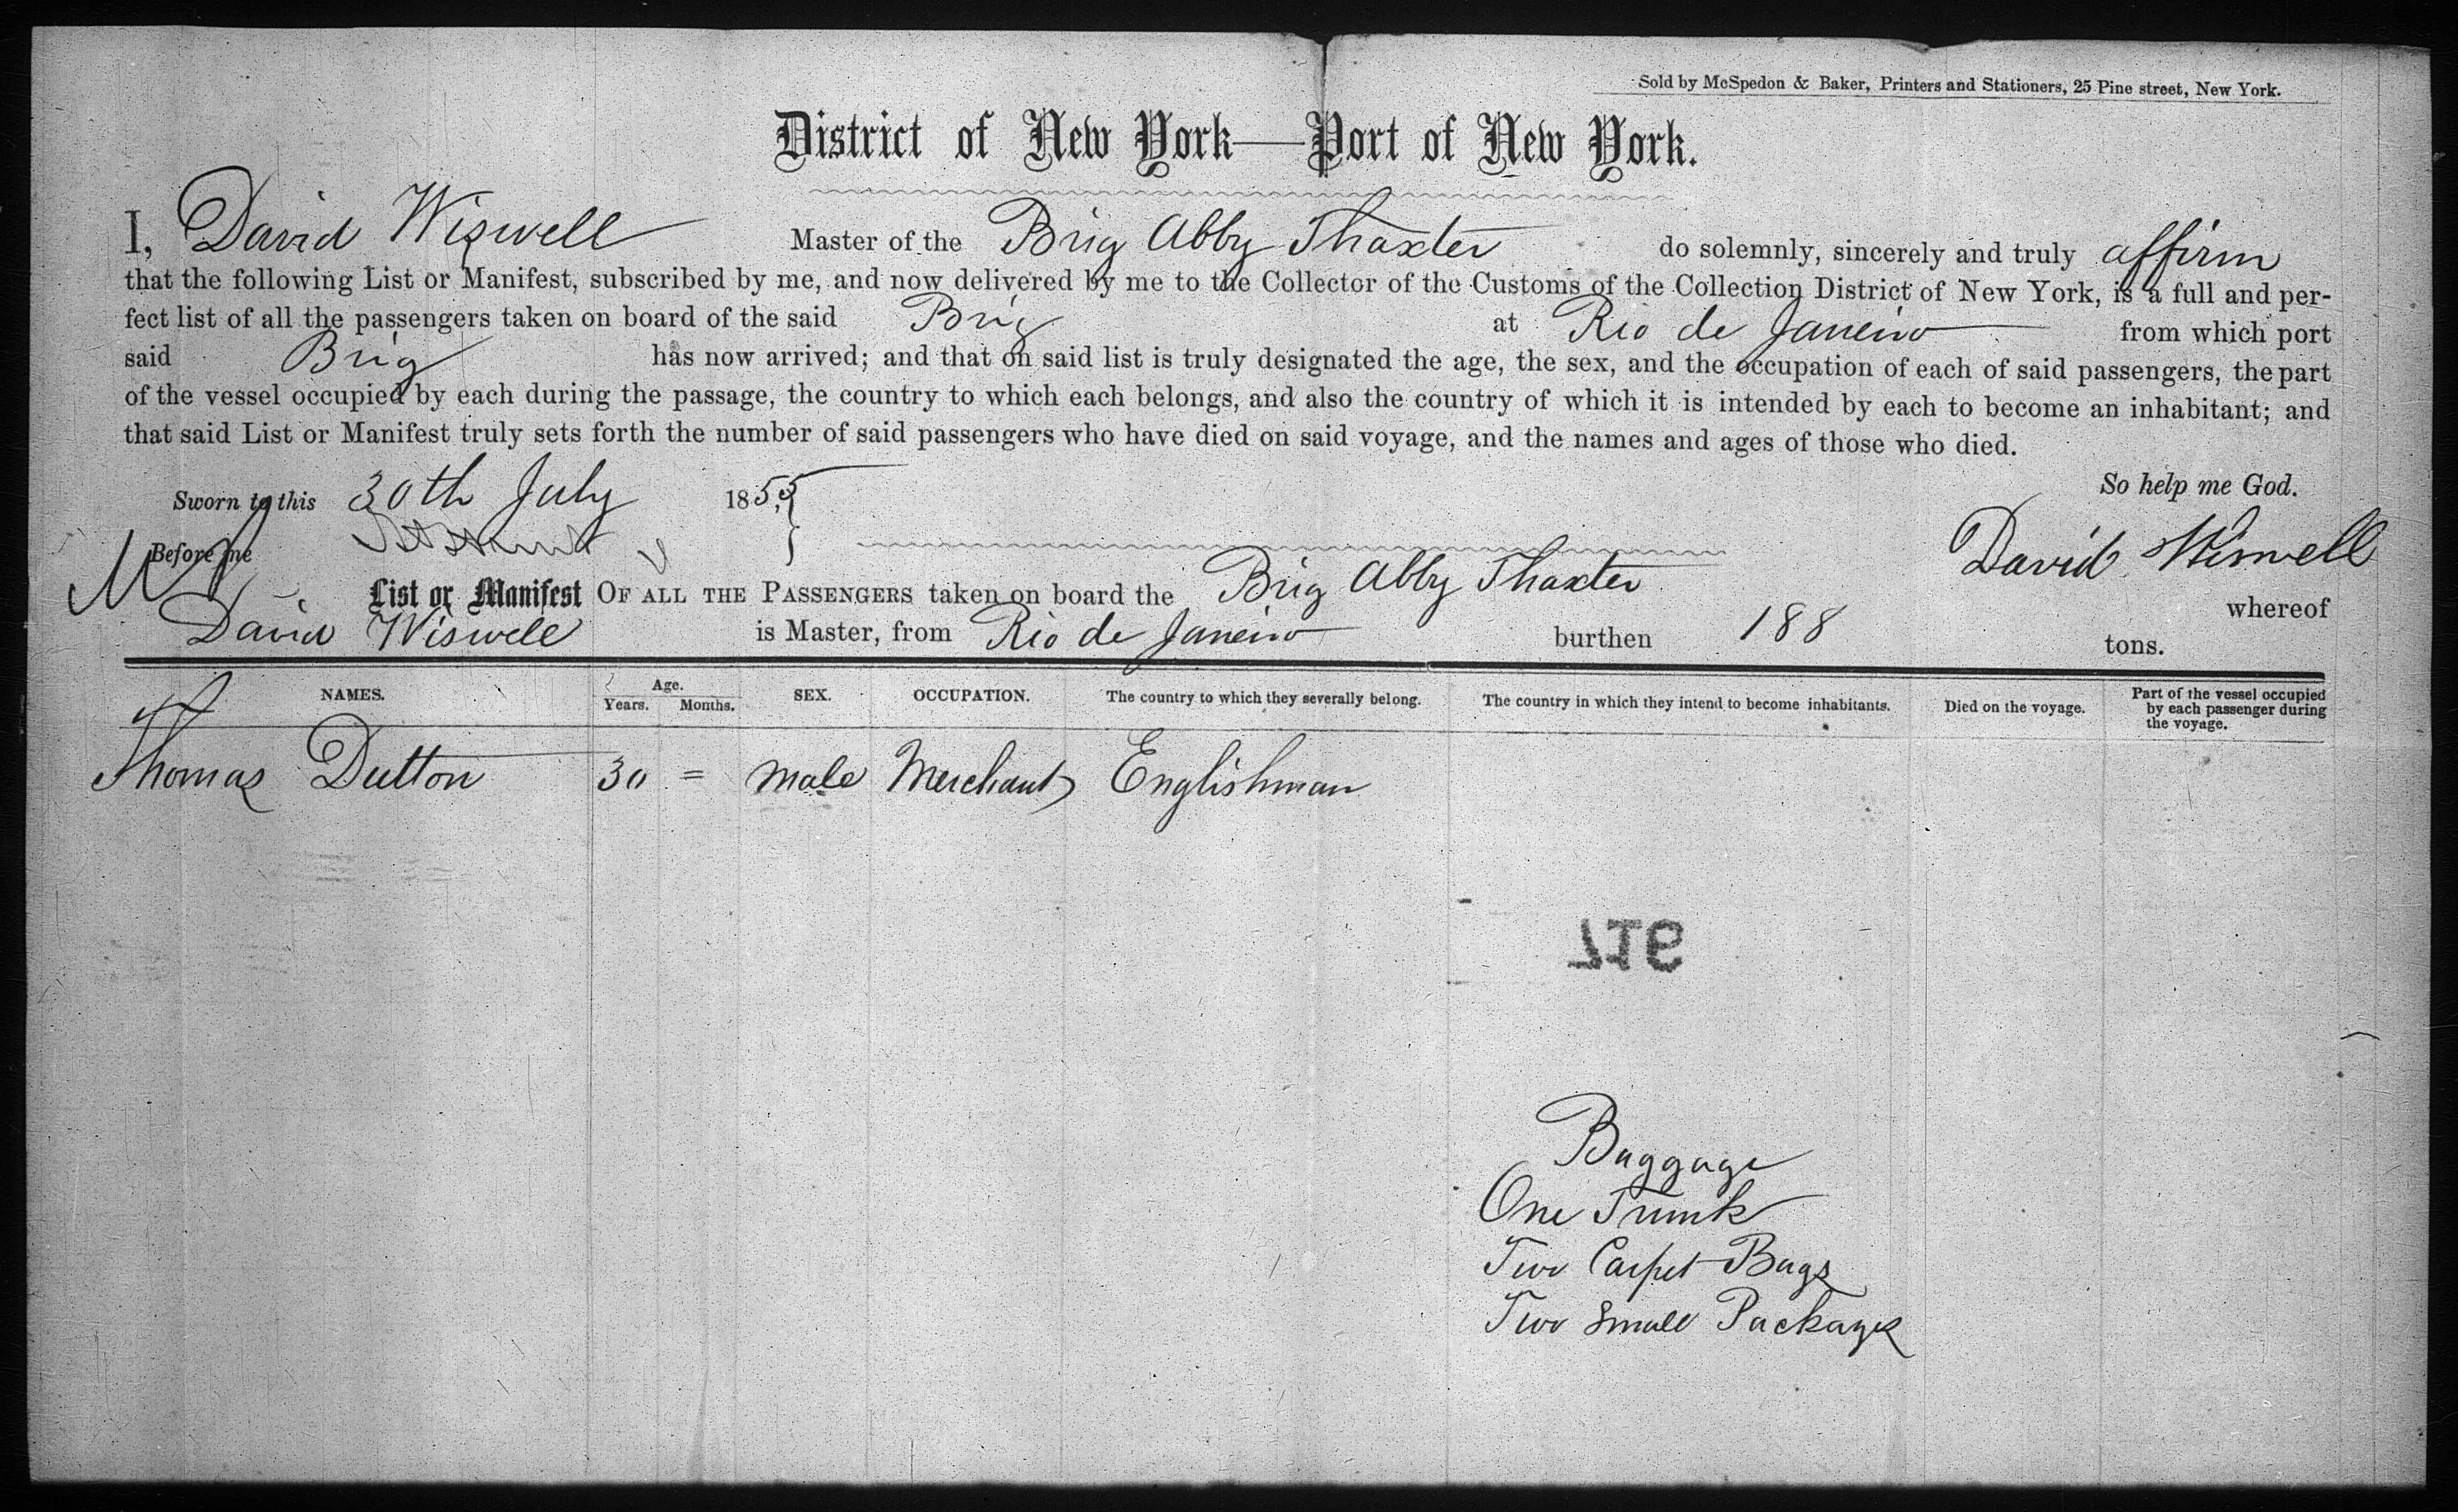 Sold by McSpedon & Baker, Printers and Stationers, 25 Pine street, New York.
District of New York—Port of New York.
I, David Wiswell Master of the Brig Abby Thaxter do solemnly, sincerely and truly affirm
that the following List or Manifest, subscribed by me, and now delivered by me to the Collector of the Customs of the Collection District of New York, is a full and per-
fect list of all the passengers taken on board of the said Brig at Rio de Janeiro from which port
said Brig has now arrived; and that on said list is truly designated the age, the sex, and the occupation of each of said passengers, the part
of the vessel occupied by each during the passage, the country to which each belongs, and also the country of which it is intended by each to become an inhabitant; and
that said List or Manifest truly sets forth the number of said passengers who have died on said voyage, and the names and ages of those who died.
So help me God.
Sworn to this 30th July 1855,
Before me
David Wiswell
List or Manifest OF ALL THE PASSENGERS taken on board the Brig Abby Thaxter whereof
David Wiswell is Master, from Rio de Janeiro burthen 188 tons.
NAMES. Age. Years. Months. SEX. OCCUPATION. The country to which they severally belong. The country in which they intend to become inhabitants. Died on the voyage. Part of the vessel occupied by each passenger during the voyage.
Thomas Dutton 30 = male Merchant Englishman
917
Baggage
One Trunk
Two Carpet Bags
Two Small Packages